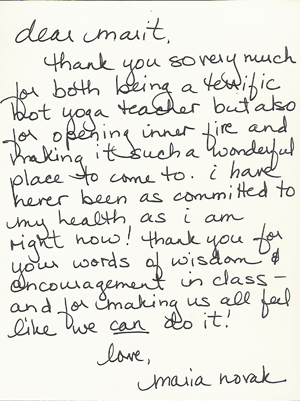 dear marit,
thank you so very much
for both being a terrific
hot yoga teacher but also
for opening inner fire and
making it such a wonderful
place to come to. i have
never been as committed to
my health as i am
right now! thank you for
your words of wisdom &
encouragement in class –
and for making us all feel
like we can do it!
love,
maria novak